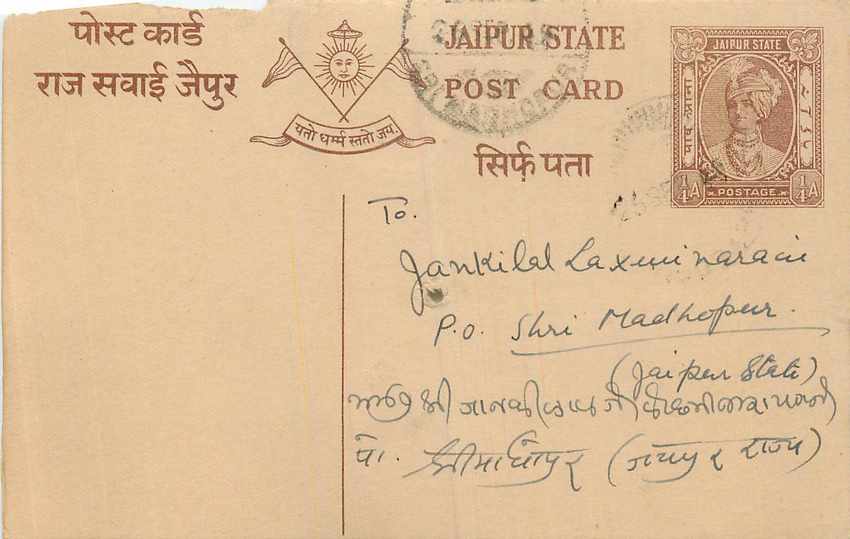 पोस्ट कार्ड
राज सवाई जैपुर
यतो धर्म्म स्ततो जय.
JAIPUR STATE
POST CARD
सिर्फ़ पता
JAIPUR STATE
पाव आना
1/4A POSTAGE 1/4A
To.
Jankilal Laxminarain
P.O. Shri Madhopur.
(Jaipur State)
श्री जानकीलालजी
पो. श्रीमाधोपुर (जयपुर राज्य)